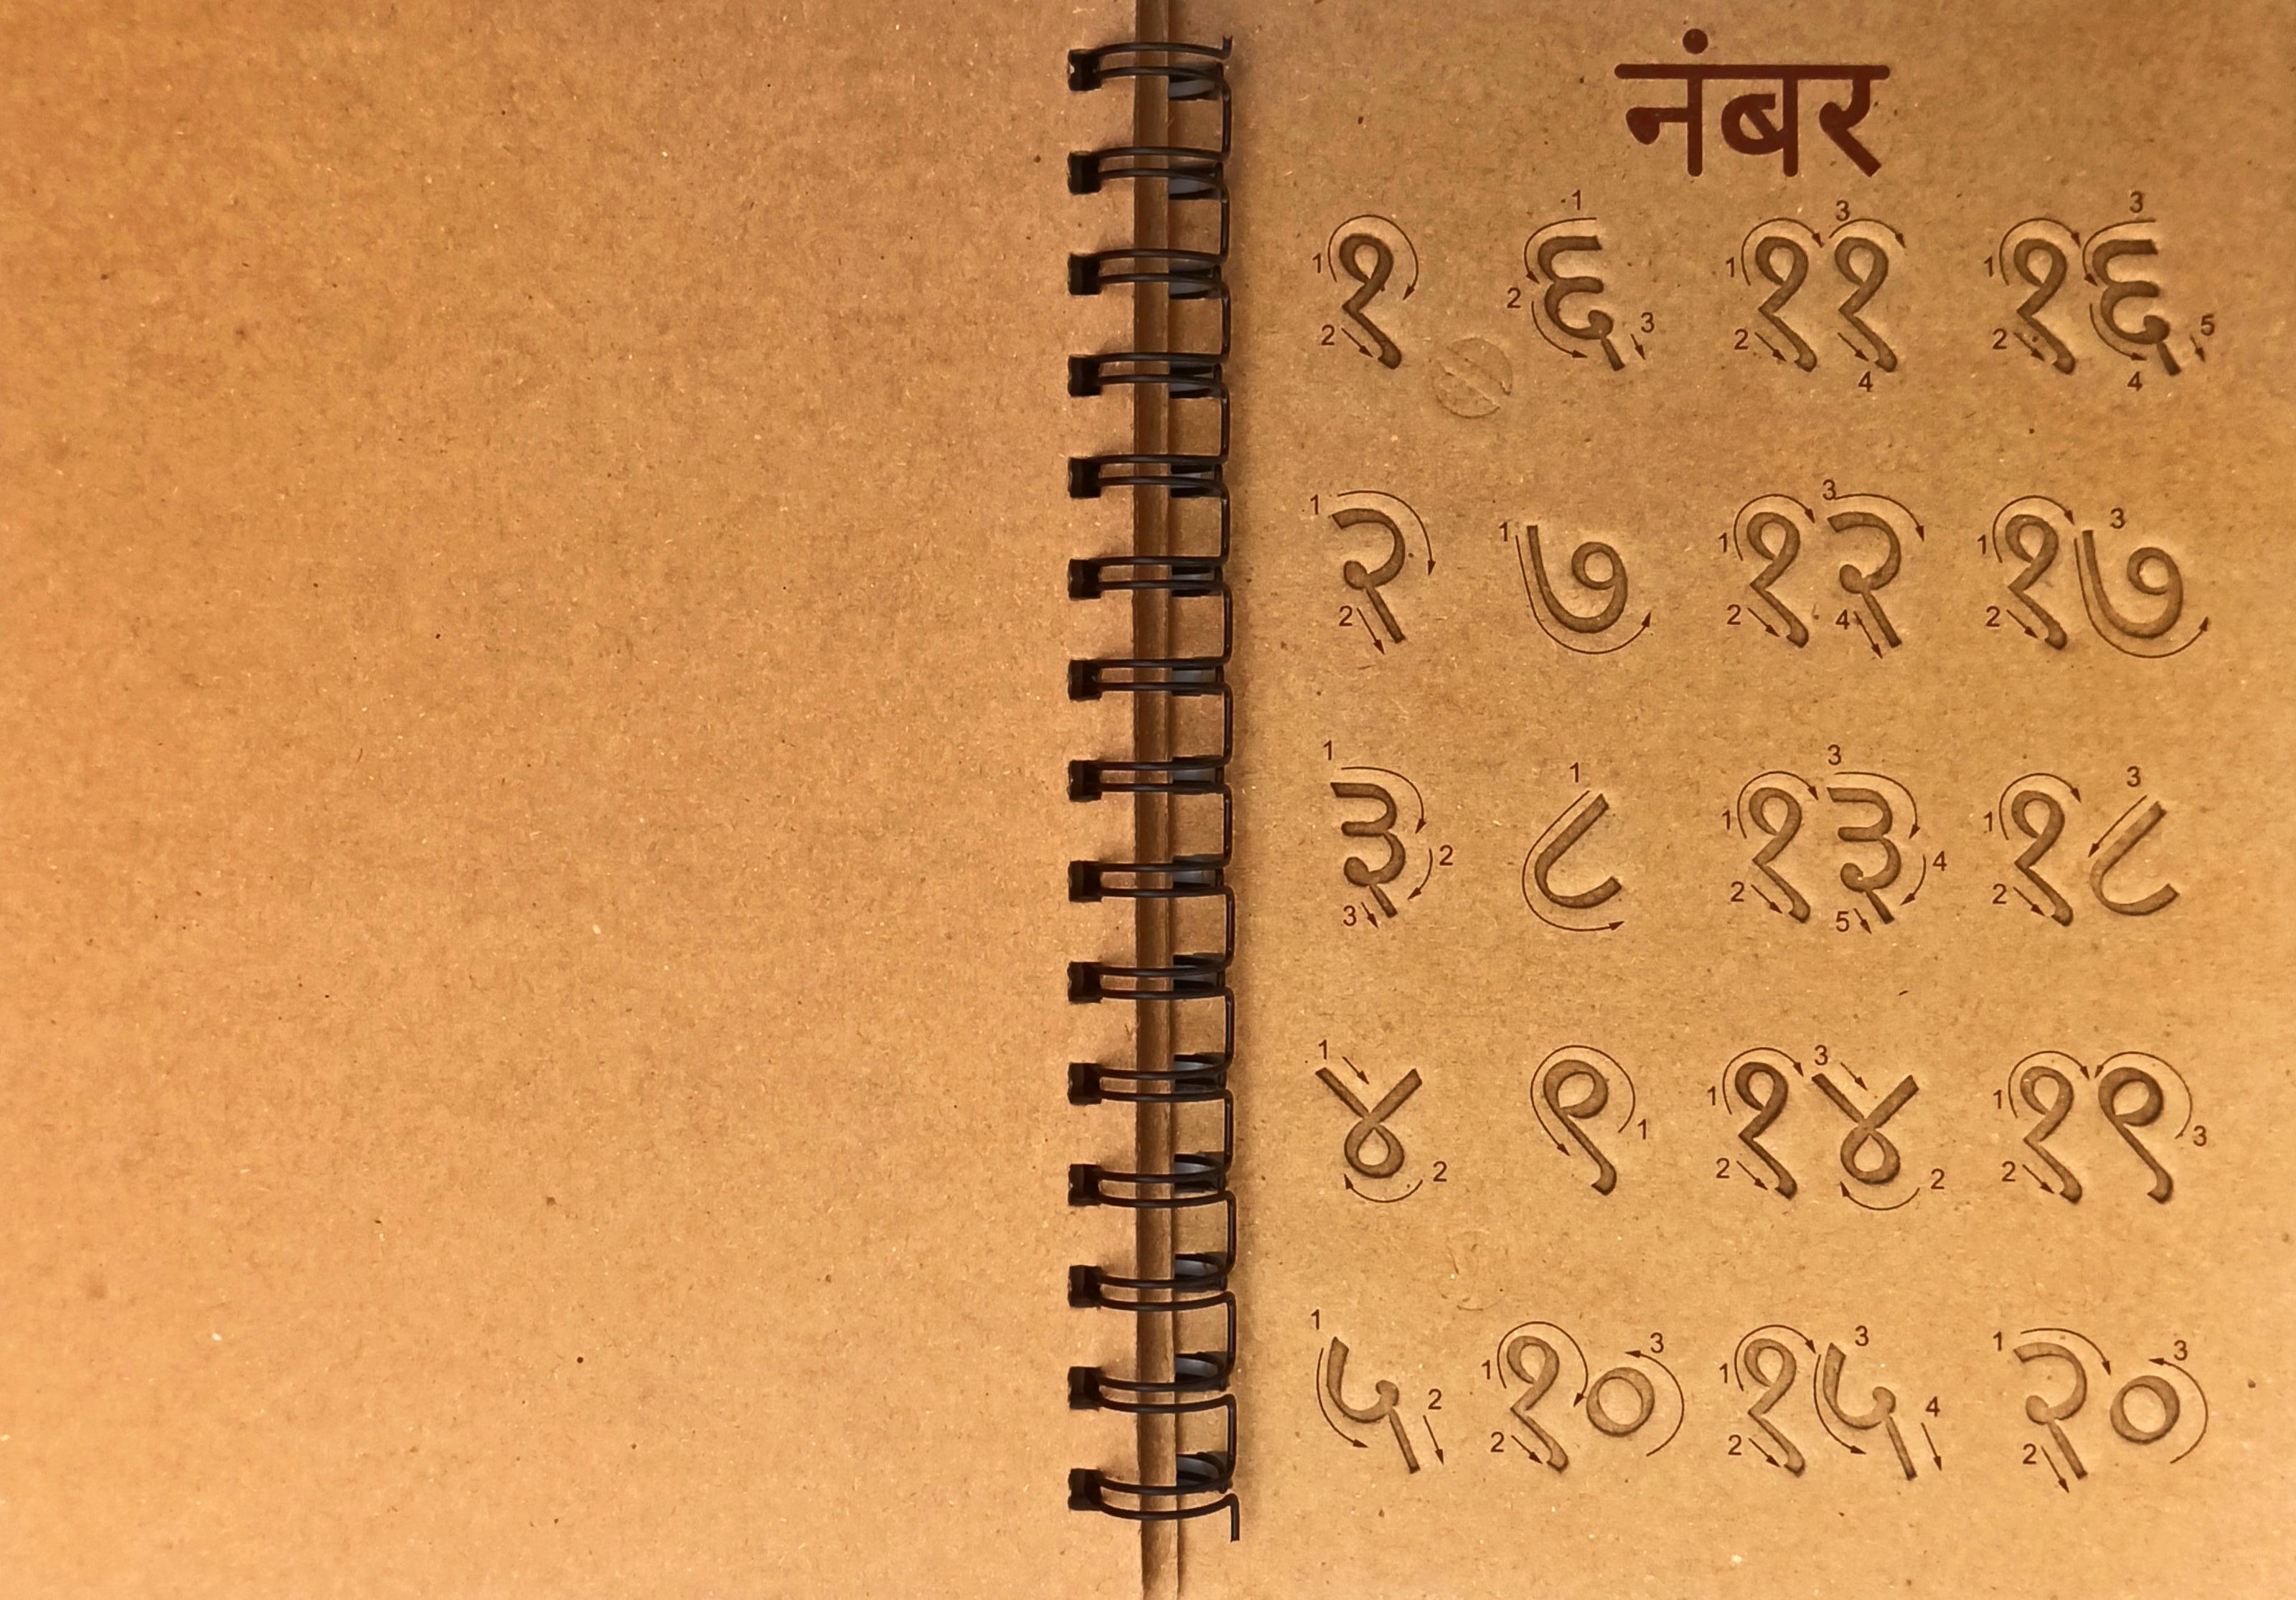 नंबर
१ ६ ११ १६
२ ७ १२ १७
३ ८ १३ १८
४ ९ १४ १९
५ १० १५ २०